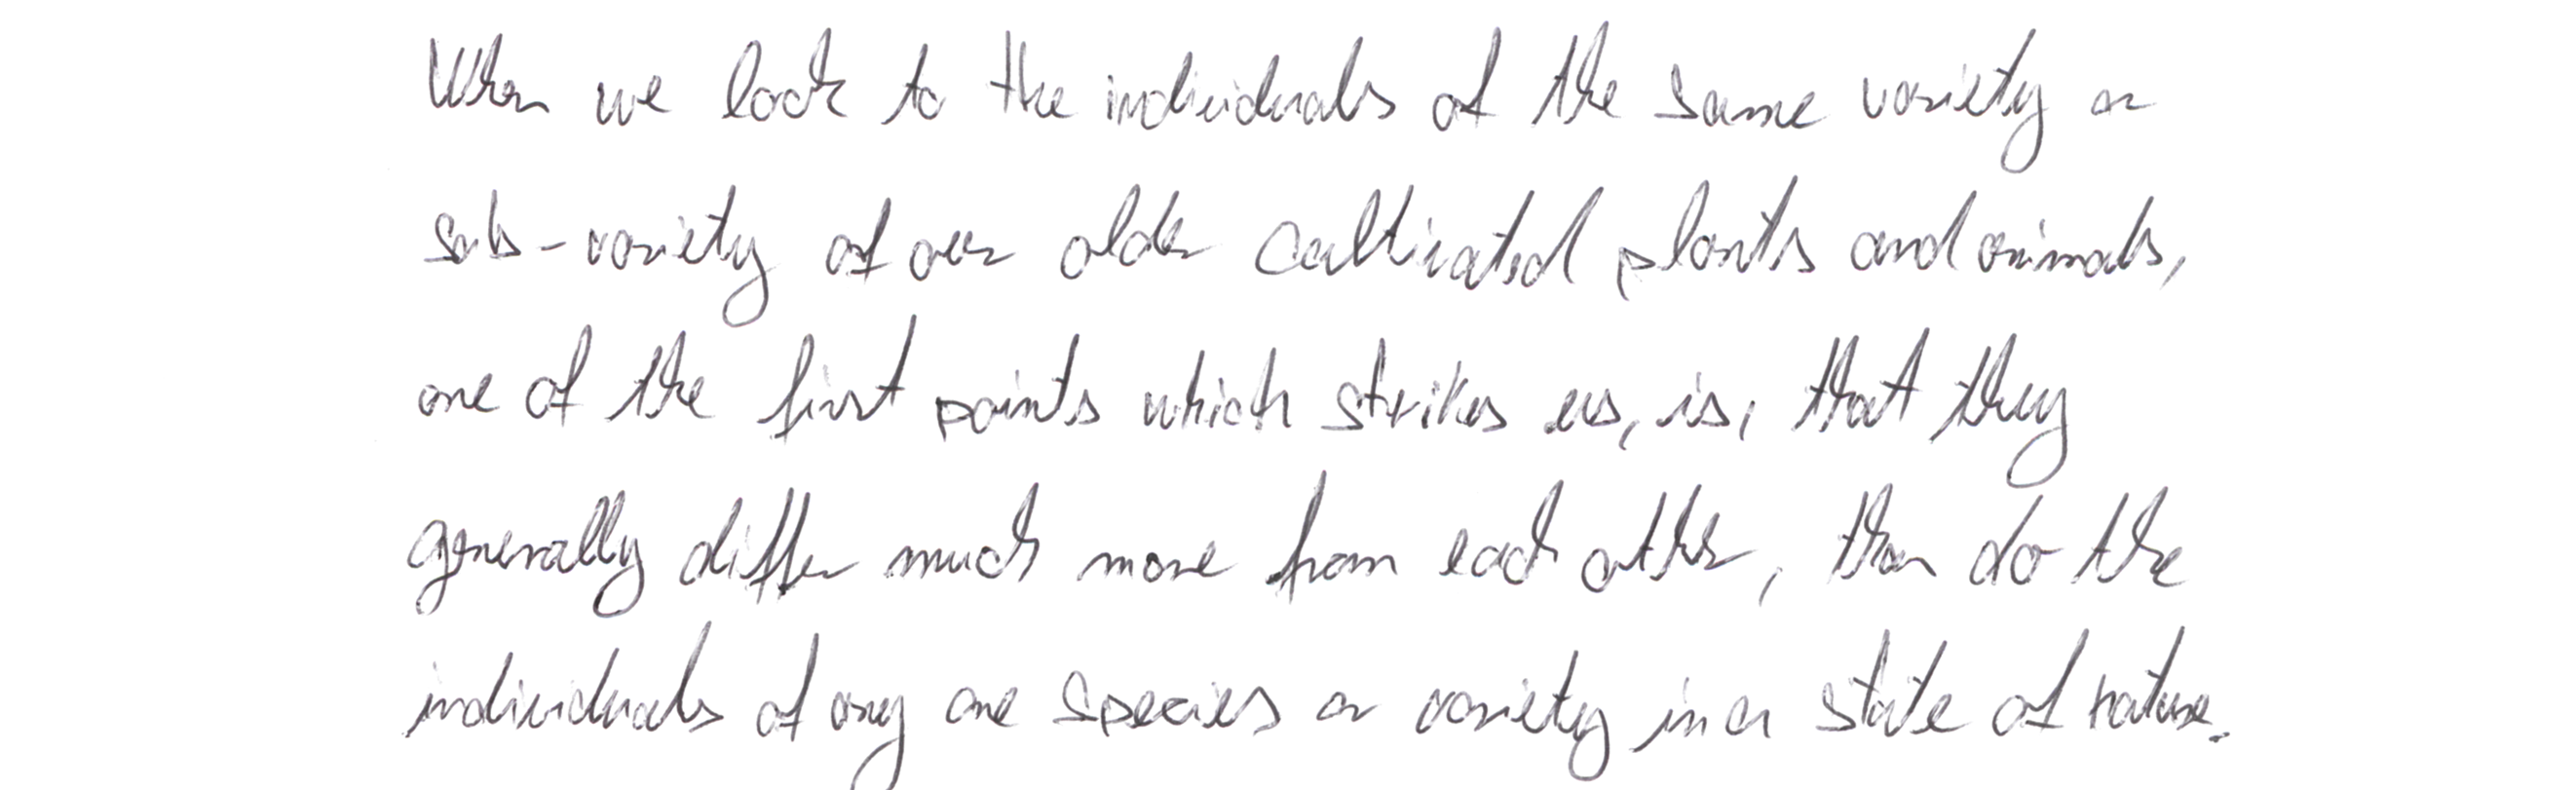 When we look to the individuals of the same variety or
sub-variety of our older cultivated plants and animals,
one of the first points which strikes us, is, that they
generally differ much more from each other, than do the
individuals of any one species or variety in a state of nature.